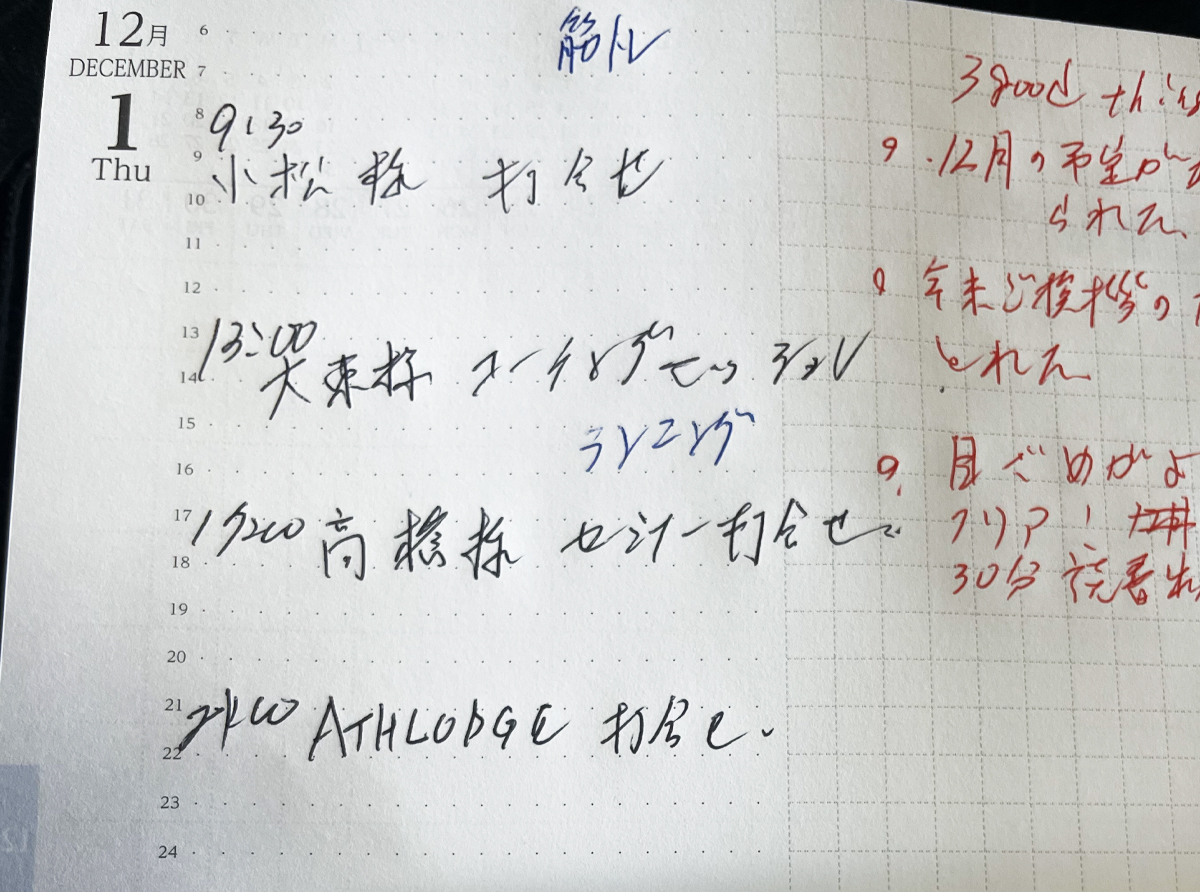 12月
DECEMBER
1
Thu
6
筋トレ
7
8
9:30
9
小松様 打合せ
10
11
12
13
13:00
14
大束様 コーチングセッション
15
ランニング
16
17
17:00 高橋様 セミナー打合せ
18
19
20
21
21:00 ATHLODGE 打合せ
22
23
24
3 good thing
・12月の予定が
られた
年末ご挨拶の
とれた
目ざめがよ
クリア!
30分 読書